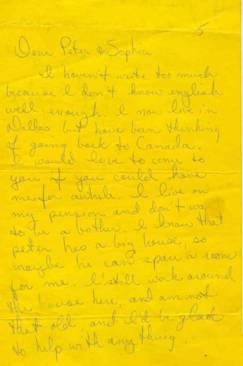 5
Dear Peter & Sophia
I haven't write too much
because I don't know english
well enough. I now live in
Dallas but have ban thinking
of going back to Canada.
I would love to come to
you if you could have
me for awhile. I live on
my pension and don't wa
to be a bother. I know that
peter has a big house, so
maybe he can spare a room
for me. I still work around
the house here, and am not
that old and I'd be glad
to help with any thing.